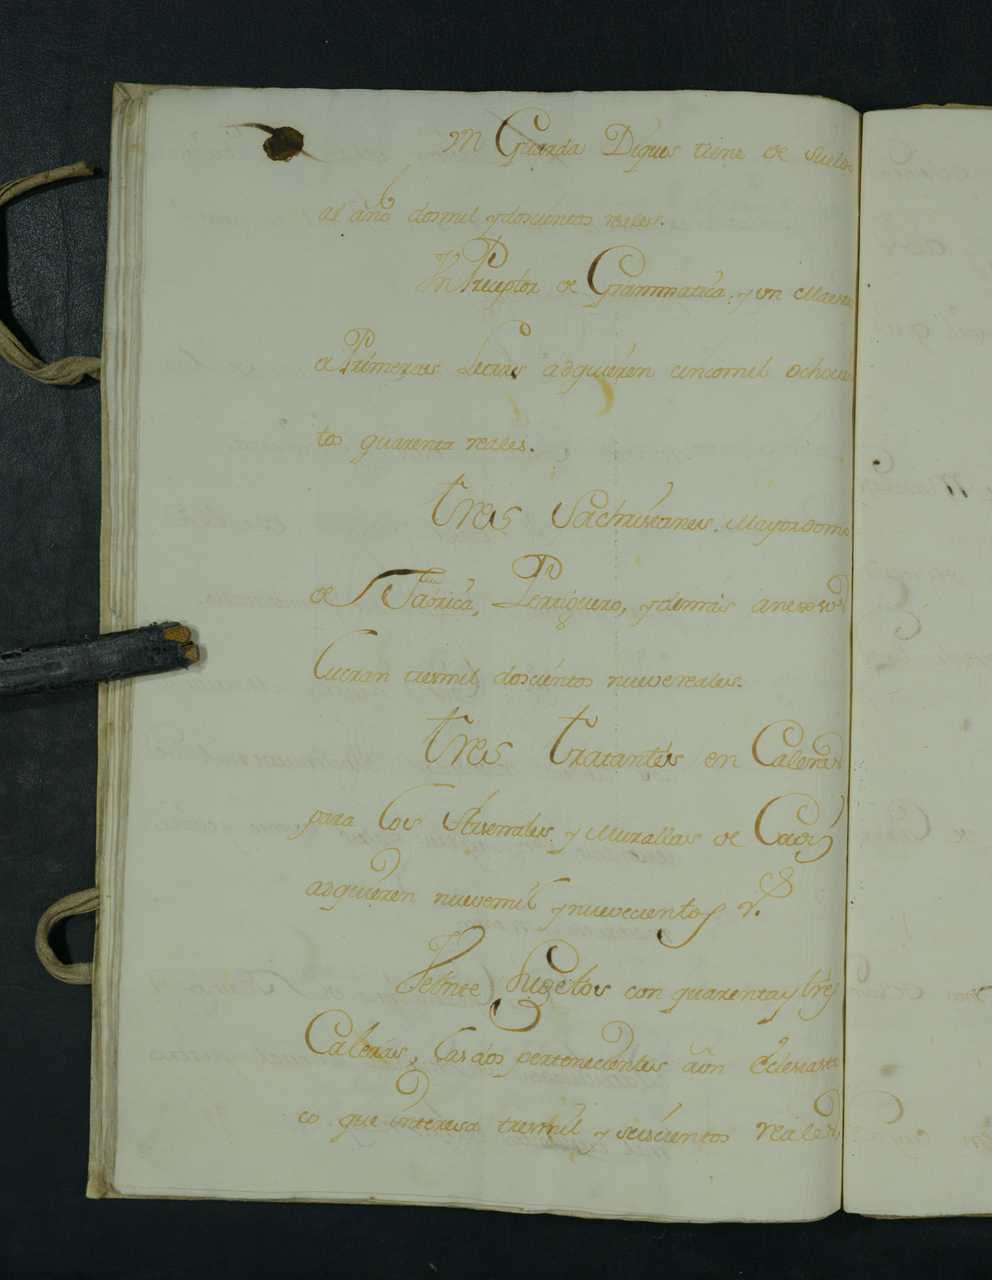 Vn Guarda Diques tiene de sueldo
al año dosmil y doscientos reales.
Vn Preceptor de Grammatica, y vn Maestro
de Primeras Letras adquieren cincomil ochocien
tos quarenta reales.
tres Sachristanes, Mayordomo
de Fabrica, Pertiguero, y demàs anexos
Lucran tresmil doscientos nueve reales.
tres tratantes en Caleras
para los y Murallas de Cadiz
adquieren nuevemil y nuevecientos r.s
Veinte Sugetos con quarenta y tres
Caleras, las dos pertenecientes a vn Eclesiasti
co que interesa tresmil y seiscientos reales